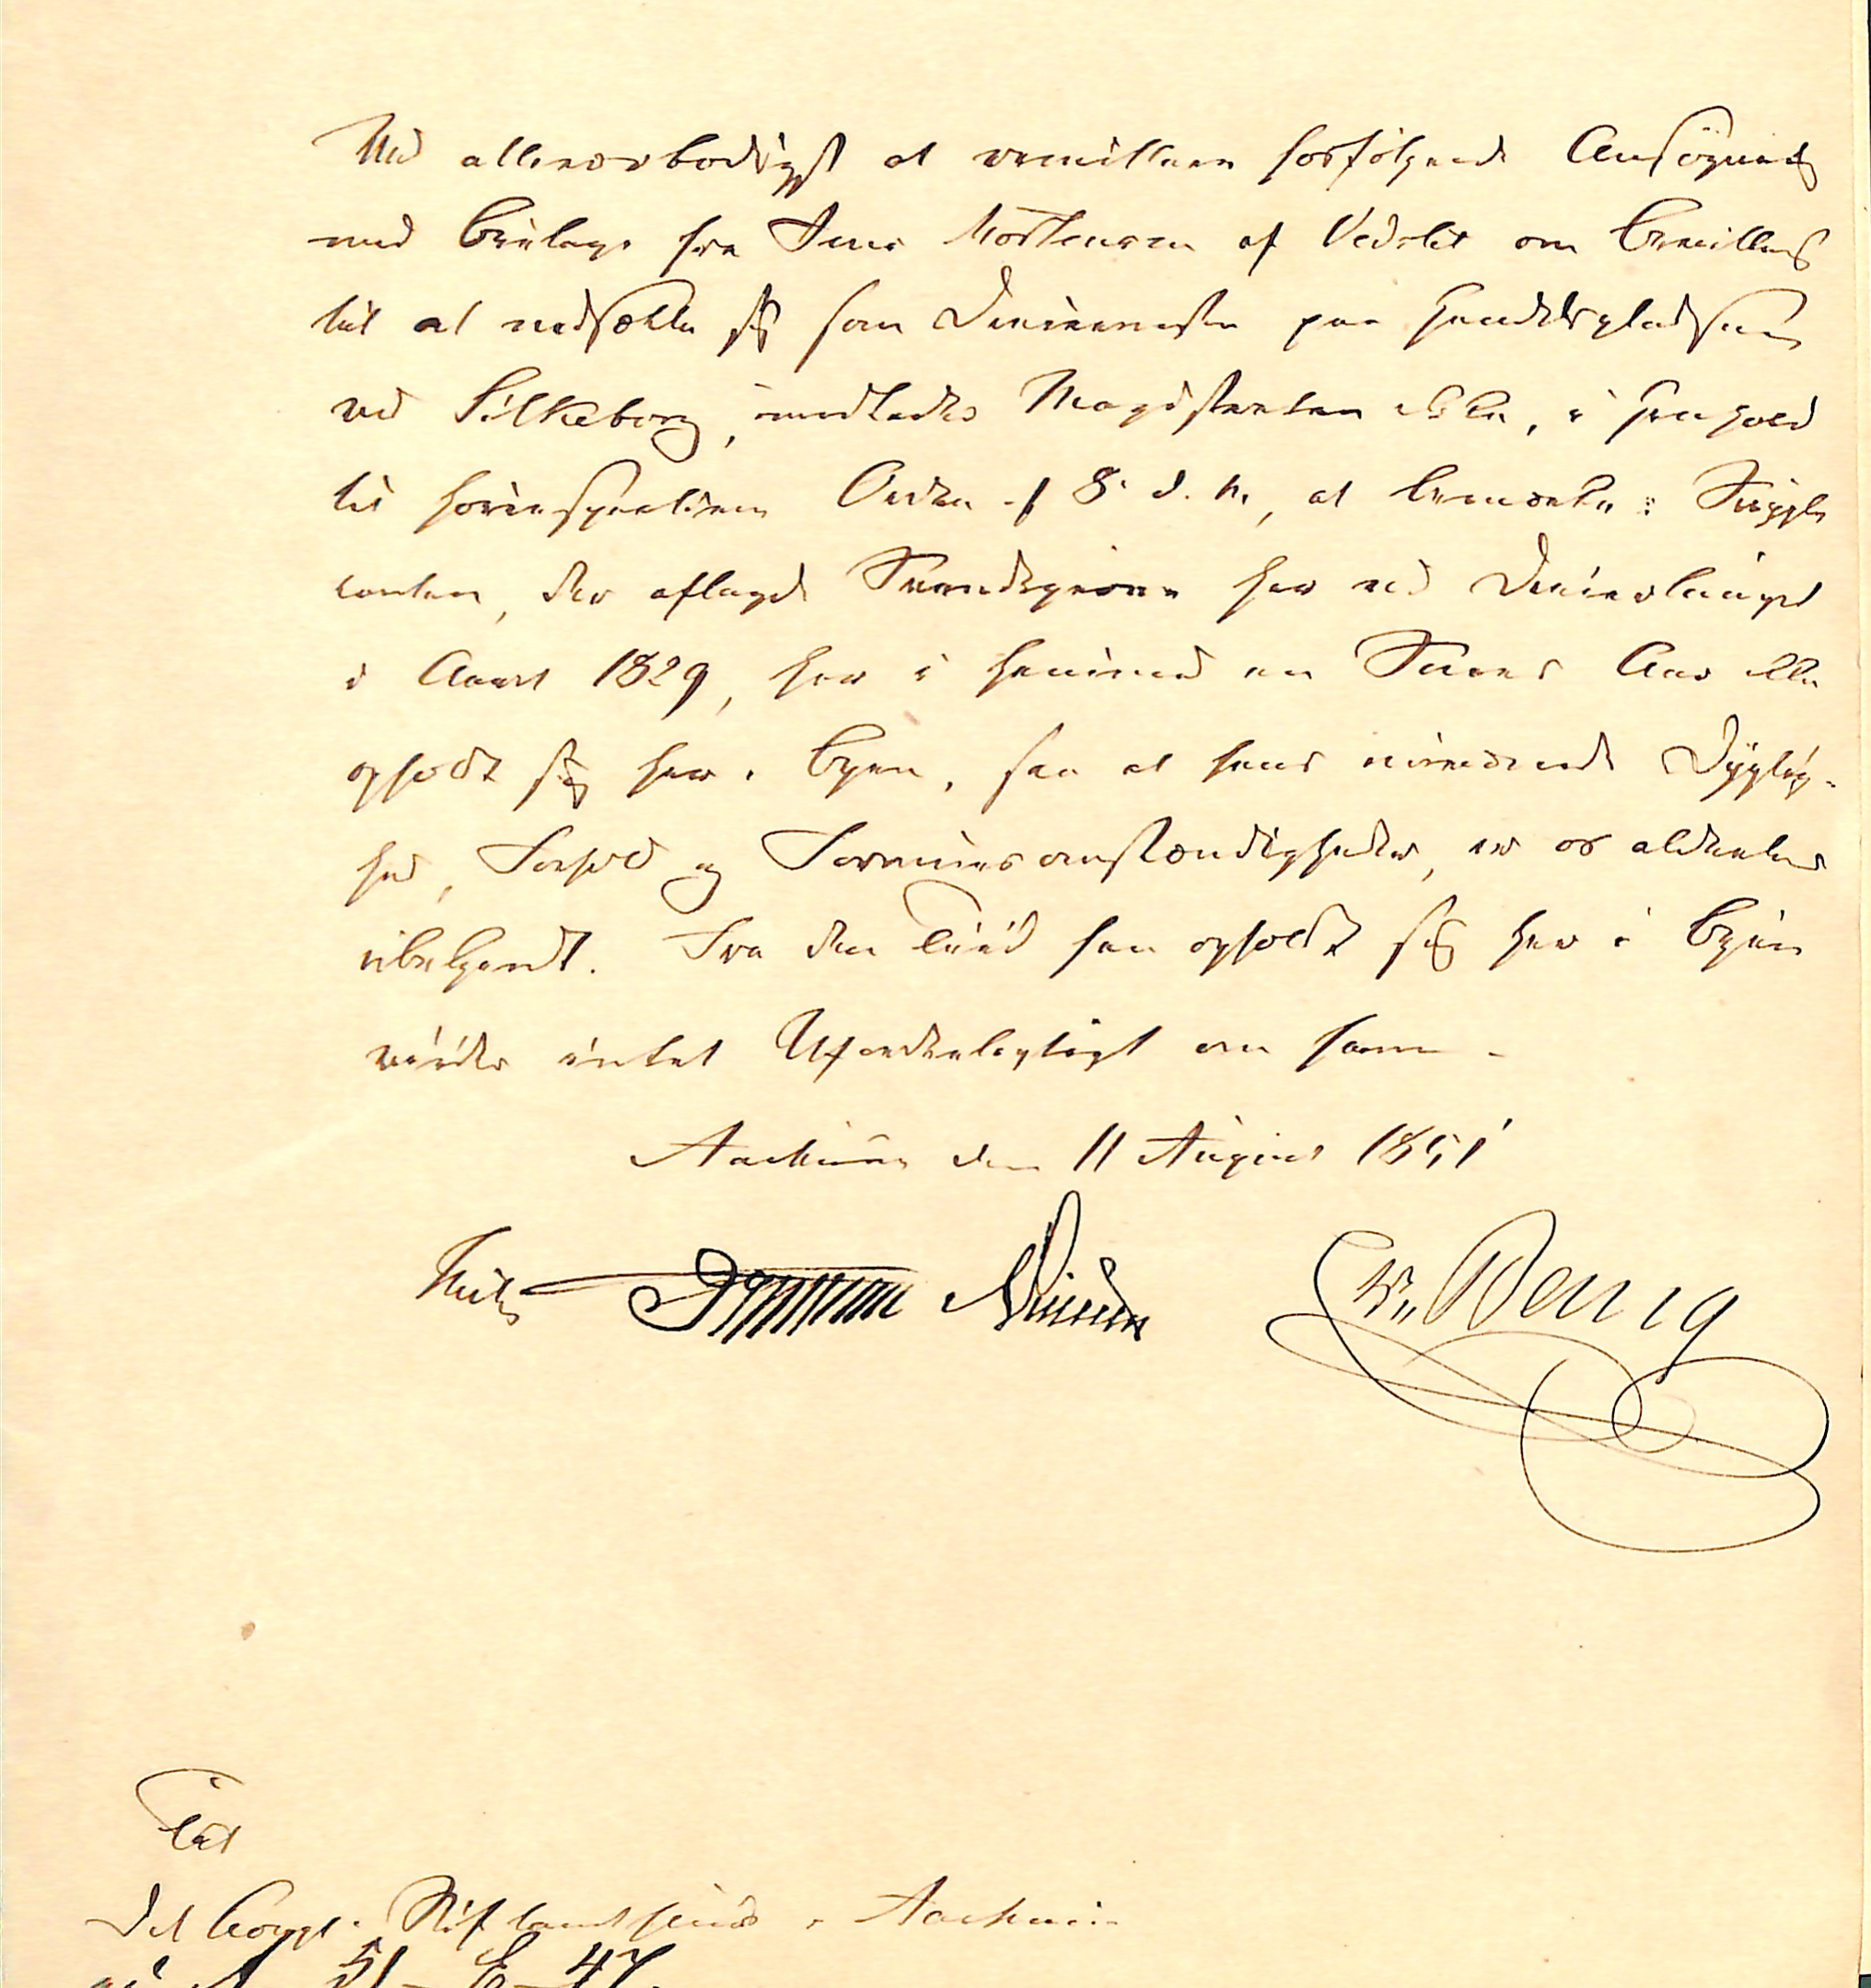 Ved allerærbødigst at remittere hosfølgende Ansøgning
med Bielage fra Jens Mortensen af Vedslet om Bevilling
til at nedsætte sig som Dreiermester paa Handelspladsen
ved Silkeborg, undlader Magistraten ikke, i Henhold
til Paategnings Orden af 8 d. M., at bemærke: Suppli-
canten, der aflagde Svendeprøve her ved Dreierlauget
i Aaret 1829, har i henimod en Snees Aar ikke
opholdt sig her i Byen, saa at hans nuværende Dygtig-
hed, Forhold og Formuesomstændigheder, er os aldeles
ubekjendt. Fra den Tiid han opholdt sig her i Byen
vides intet Ufordeelagtigt om ham.
Aarhuus den 11 August 1851
Til
Det Kongel. Stiftamthuus i Aarhuus
51 E 47